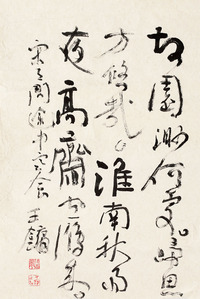 故園渺何處歸思
方悠哉淮南秋雨
夜高齋聞雁來
王鏞